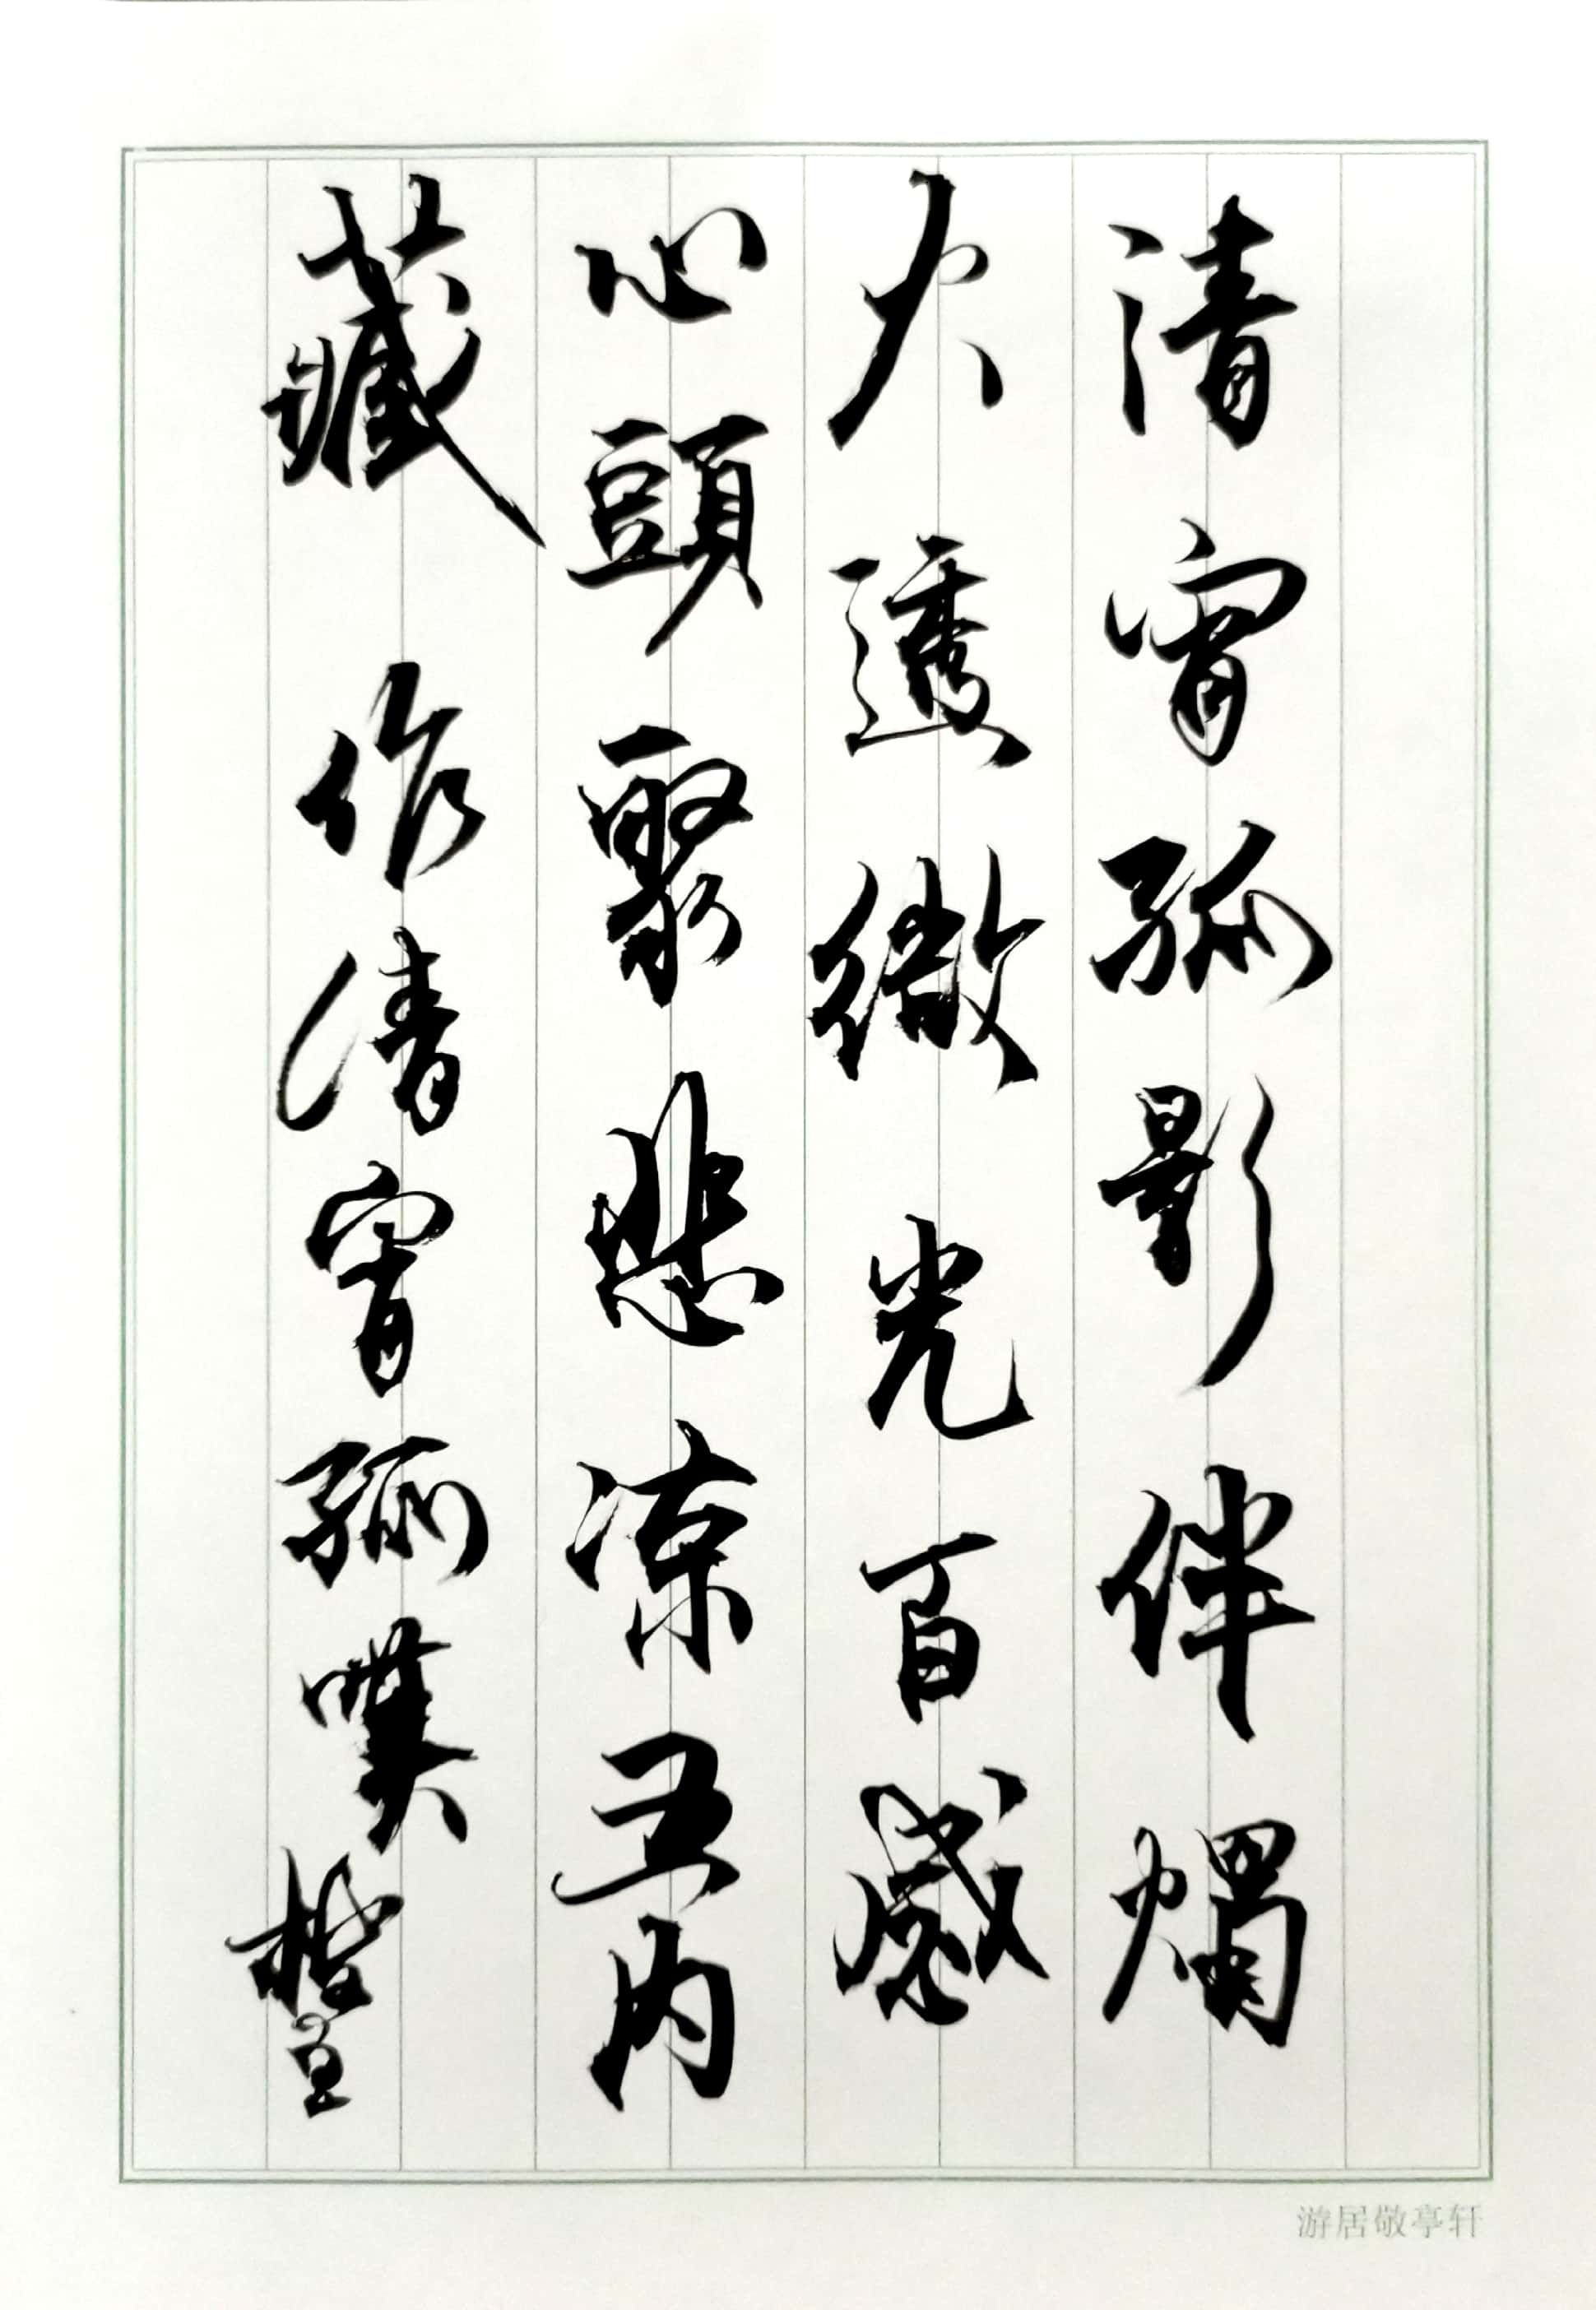 清宵孤影伴燭
火透微光百感
心頭聚悲凉五内
藏 作清宵孤嘆
游居敬亭轩